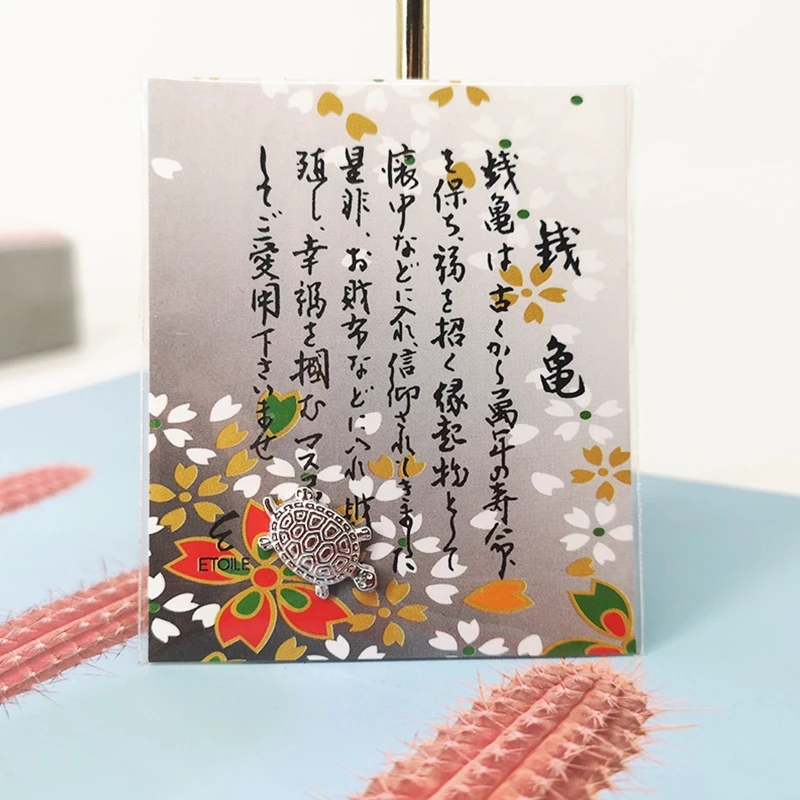 銭亀
銭亀は古くから萬年の寿命
を保ち、福を招く縁起物として
懐中などに入れ、信仰されてきました
是非、お財布などに入れ財
殖し、幸福を掴むマスコ
してご愛用下さいませ
ETOILE